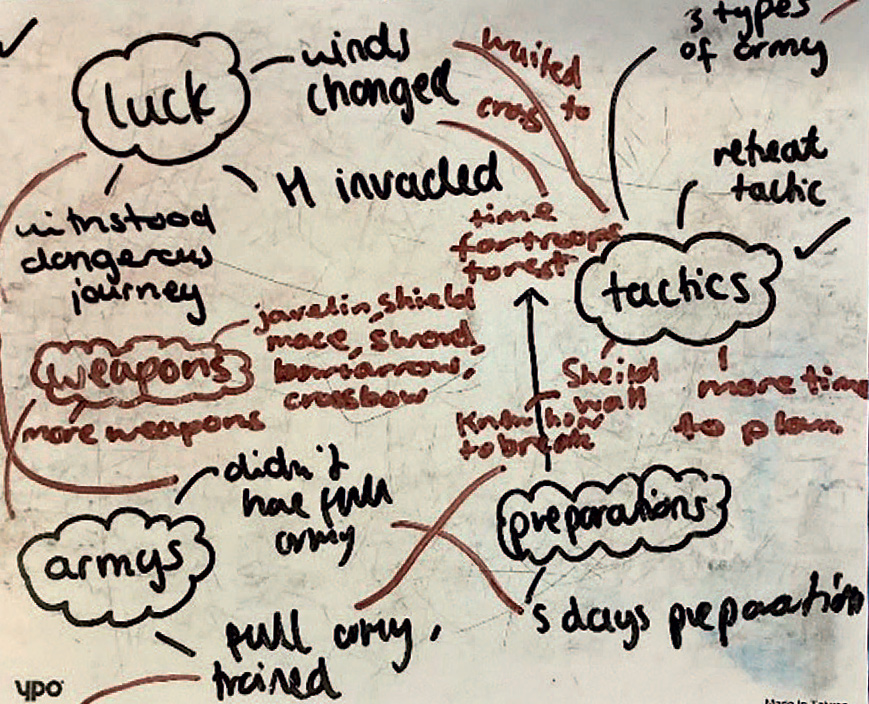 3 types
of army
luck
winds
changed
waited
cross to
retreat
tactic
H invaded
withstood
dangerous
journey
time
for troops
to rest
tactics
weapons
javelin, shield
mace, sword,
bow+arrow,
crossbow
more weapons
Sheild
wall
Know how
to break
more time
to plan
didn't
have full
army
preparations
armys
5 days preparation
full army,
trained
ypo